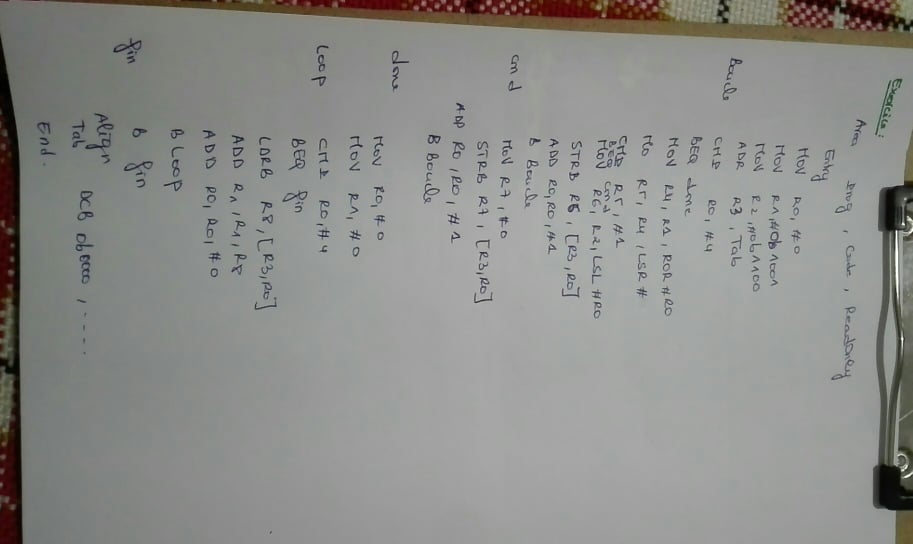 Exercice :
Area Prog , Code , ReadOnly
Entry
MOV R0, #0
MOV R1, #0b1001
MOV R2, #0b1100
ADR R3 , Tab
Boucle CMP R0, #4
BEQ done
MOV R4, R1, ROR #R0
MO R5, R4, LSR #
CMP R5, #1
BEQ cmd
MOV R6, R2, LSL #R0
STRB R6, [R3, R0]
ADD R0, R0, #1
B Boucle
cmd MOV R7, #0
STRB R7, [R3, R0]
ADD R0, R0, #1
B Boucle
done
MOV R0, #0
MOV R1, #0
Loop CMP R0, #4
BEQ fin
LDRB R8, [R3, R0]
ADD R1, R1, R8
ADD R0, R0, #0
B Loop
fin B fin
Align
Tab DCB 0b0000 , ----.
End.